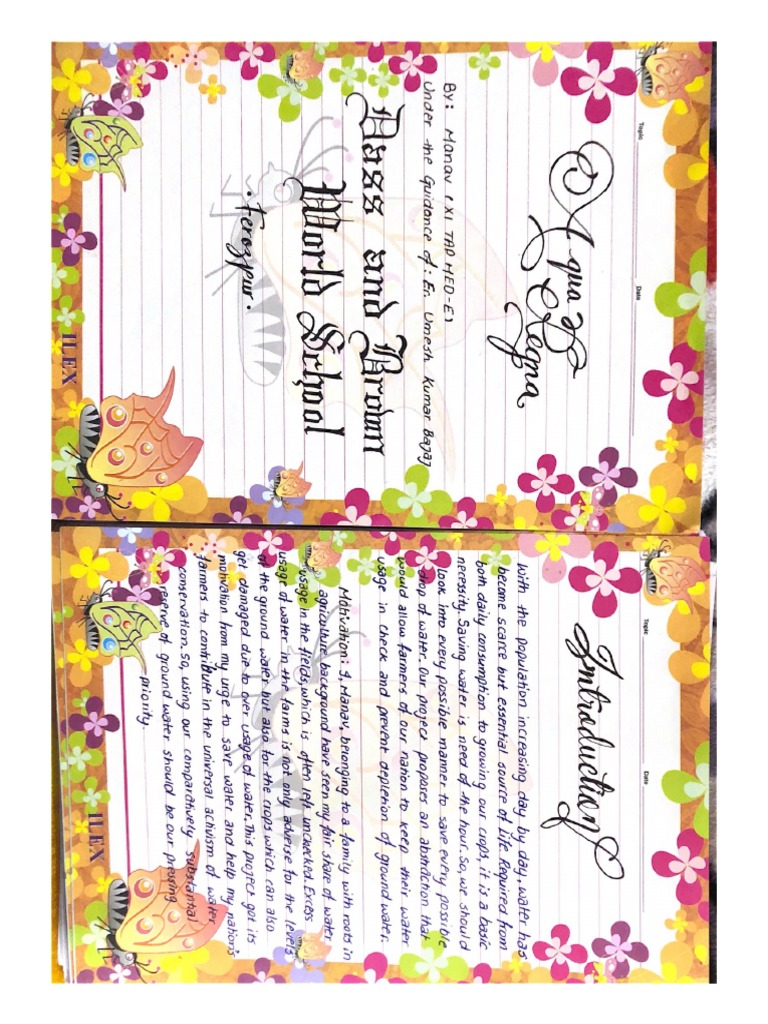 Topic
Date
Aqua
Regna
By: Manav (XI TAP MED-E)
Under the Guidance of: Er. Umesh Kumar Bajaj
Dass and Brown
World School
. Ferozpur.
ILEX
Topic
Date
Introduction
With the population increasing day by day, water has
become scarce but essential source of Life. Required from
both daily consumption to growing our crops, it is a basic
necessity. Saving water is need of the hour. So, we should
look into every possible manner to save every possible
drop of water. Our project proposes an abstraction that
would allow farmers of our nation to keep their water
usage in check and prevent depletion of ground water.
Motivation: I, Manav, belonging to a family with roots in
agriculture background have seen my fair share of water
usage in the fields, which is often left unchecked. Excess
usage of water in the farms is not only adverse for the levels
of the ground water but also for the crops which can also
get damaged due to over usage of water. This project got its
motivation from my urge to save water and help my nation's
farmers to contribute in the universal activism of water
conservation. So, using our comparatively substantial
reserve of ground water should be our pressing
priority.
ILEX